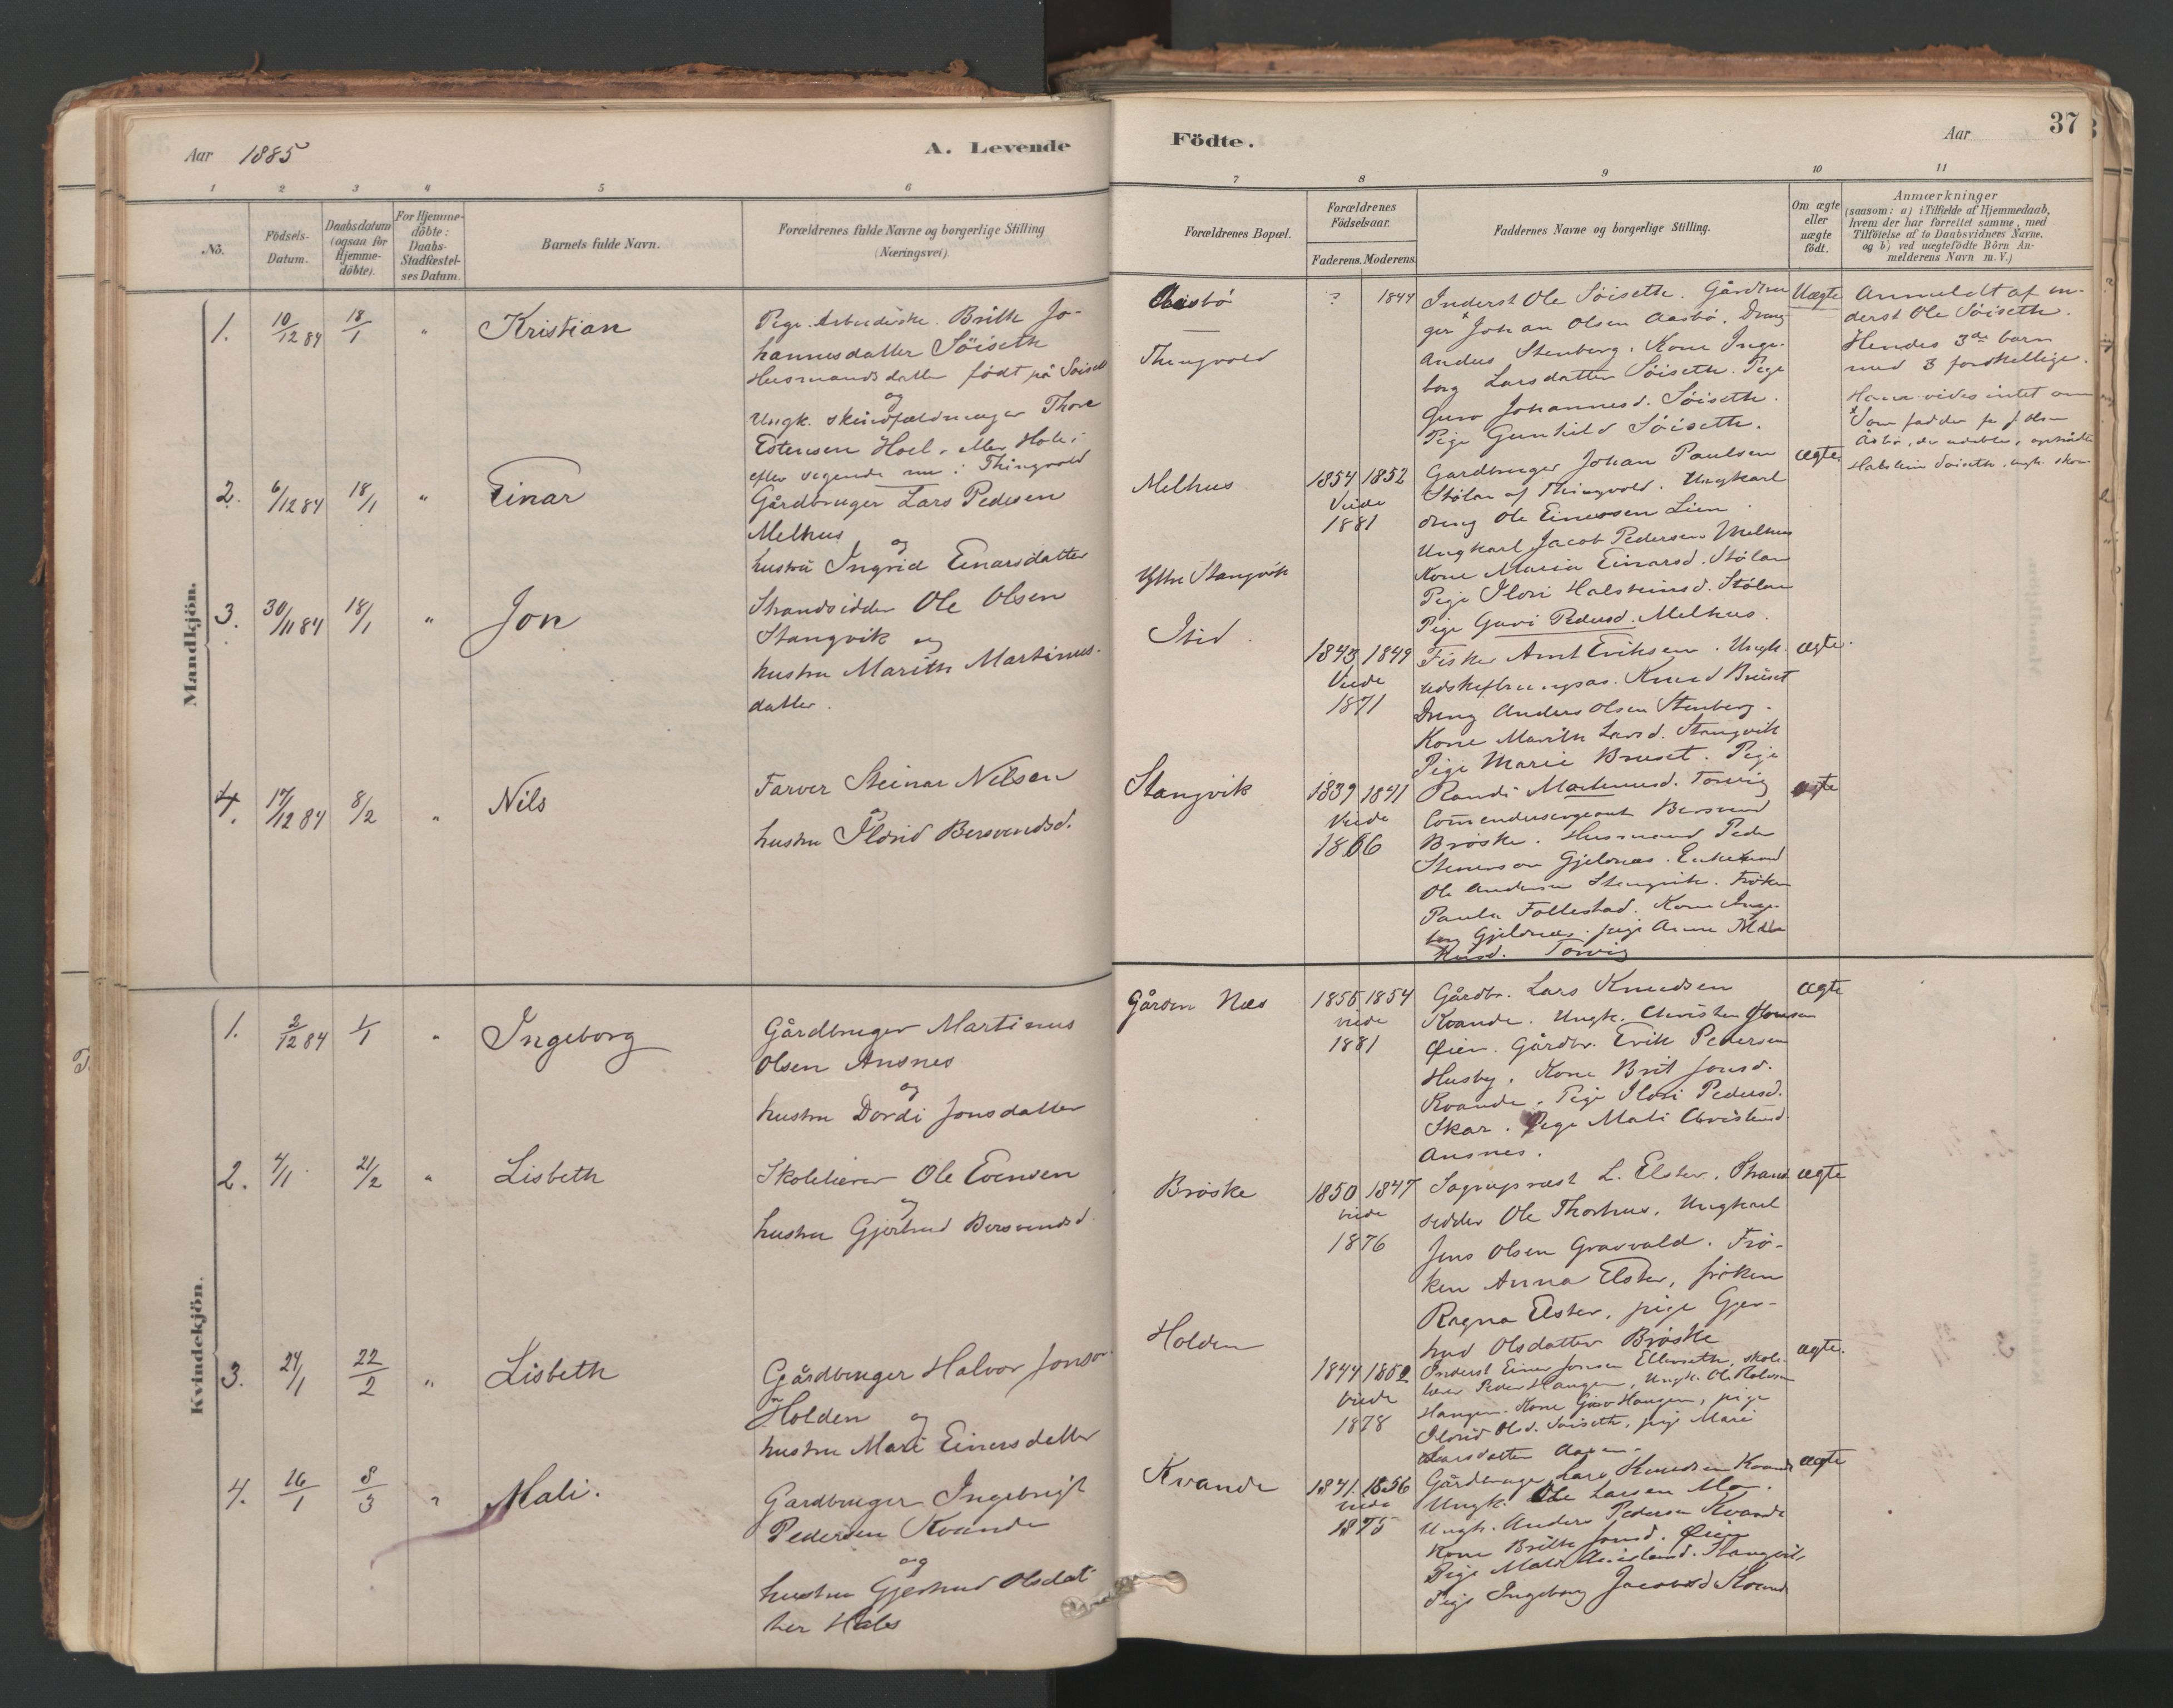 Aar 1885
A. Levende
1 2 3 4 5 6
No.
Födsels-
Datum.
Daabsdatum
(ogsaa for
Hjemme-
döbte).
For Hjemme-
döbte:
Daabs-
Stadfæstel-
ses Datum.
Barnets fulde Navn.
Forældrenes fulde Navne og borgerlige Stilling
(Næringsvei).
Mandkjön.
1. 10/12 84 18/1 " Kristian
Pige. Arbeiderske. Brith Jo-
hannesdatter Söiseth
Husmandsdatter født på Söiseth
og
Ungk. skindfældmager Thore
Estensen Hoel, eller Hole,
efter sigende nu i Thingvold
2. 6/12 84 18/1 " Einar
Gårdbruger Lars Pedersen
Melhus
og
hustru Ingrid Einarsdatter
3. 30/11 84 18/1 " Jon
Strandsidder Ole Olsen
Stangvik og
hustru Marith Martinus-
datter.
4. 17/12 84 8/2 " Nils
Farver Steinar Nilsen
hustru Ildrid Bersvendsd.
Kvindekjön.
1. 2/12 84 1/1 " Ingeborg
Gårdbruger Martinus
Olsen Ansnes
og
hustru Dordi Jonsdatter
2. 4/1 21/2 " Lisbeth
Skolelærer Ole Evensen
og
hustru Gjertrud Bersvendsd.
3. 24/1 22/2 " Lisbeth
Gårdbruger Halvor Jonsen
Holden og
hustru Mari Einersdatter
4. 16/1 8/3 " Mali.
Gardbruger Ingebrigt
Pedersen Kvande
og
hustru Gjertrud Olsdat-
ter Hals
Födte.
Aar
37
7 8 9 10 11
Forældrenes Bopæl.
Forældrenes
Födselsaar.
Faderens. Moderens.
Faddernes Navne og borgerlige Stilling.
Om ægte
eller
uægte
födt.
Anmærkninger
(saasom: a) i Tilfælde af Hjemmedaab,
hvem der har forrettet samme, med
Tilföielse af to Daabsvidners Navne.
og b) ved uægtefödte Börn An-
melderens Navn m. V.)
Aasbö
Thingvold
? 1844
Inderst Ole Söiseth. Gårdbru
ger Johan Olsen Aasbö. Dreng
Anders Stenberg. Kone Inge-
borg Larsdatter Söiseth. Pige
Guro Johannesd. Söiseth.
Pige Gunhild Söiseth.
Uægte
Anmeldt af in-
derst Ole Söiseth.
Hendes 3de barn
med 3 forskellige.
Hana vides intet om
Som fadder for J Olsen
Åsbö, der udeblev, optrådte
Halstein Söiseth, ungk.
Melhus
1854 1852
Viede
1881
Gardbruger Johan Paulsen
Stölan af Thingvold. Ungkarl
dreng Ole Einersen Lien.
Ungkarl Jacob Pedersen Melhus
Kone Maria Einarsd. Stölan
Pige Ildri Halsteinsd. Stölan
Pige Guri Pedersd. Melhus.
ægte.
Ytre Stangvik
Itid.
1843 1849
Viede
1871
Fisker Arnt Eriksen. Ungk.
Knud Bruset
Dreng Anders Olsen Stenberg.
Kone Marith Larsd. Stangvik
Pige Marie Bruset. Pige
Randi Martinusd. Torvig
ægte.
Stangvik
1839 1841
Viede
1866
Comandersergeant Bersvend
Bröske. Husmand Peder
Stenersen Gjeldnæs. Enkemand
Ole Andersen Stangvik. Fröken
Paula Follestad. Kone Inge-
borg Gjeldnæs. pige Anne Mar
tinusd. Torvig
ægte
Gården Næs
1855 1854
viede
1881
Gårdbr. Lars Knudsen
Kvande. Ungk. Christen Jonsen
Öien. Gårdbr. Erik Pedersen
Husby. Kone Brit Jonsd.
Kvande. Pige Ildri Pedersd.
Skar. Pige Mali Christensd.
Ansnes.
ægte
Bröske
1850 1847
viede
1876
Sogneprest L. Elster. Strand
sidder Ole Thorhus. Ungkarl
Jens Olsen Gravvald. Frö-
ken Anna Elster, fröken
Ragna Elster, pige Gjer-
trud Olsdatter Bröske
ægte
Holden
1844 1852
Viede
1878
Inderst Einer Jonsen Ellevseth, skole-
lærer Peder Haugen, Ungk. Ole
Haugen. Kone Guro Haugen, pige
Ildrid Olsd. Söiseth, pige Mari
Larsdatter
ægte.
Kvande
1841. 1856
viede
1875
Gårdbruger Lars Knudsen Kvande
Ungk. Ole Larsen Mo.
Ungk. Anders Pedersen Kvande
Kone Brith Jonsd. Öien
Pige Mali Stangvik
Pige Ingeborg Jacobsd. Kvande
ægte